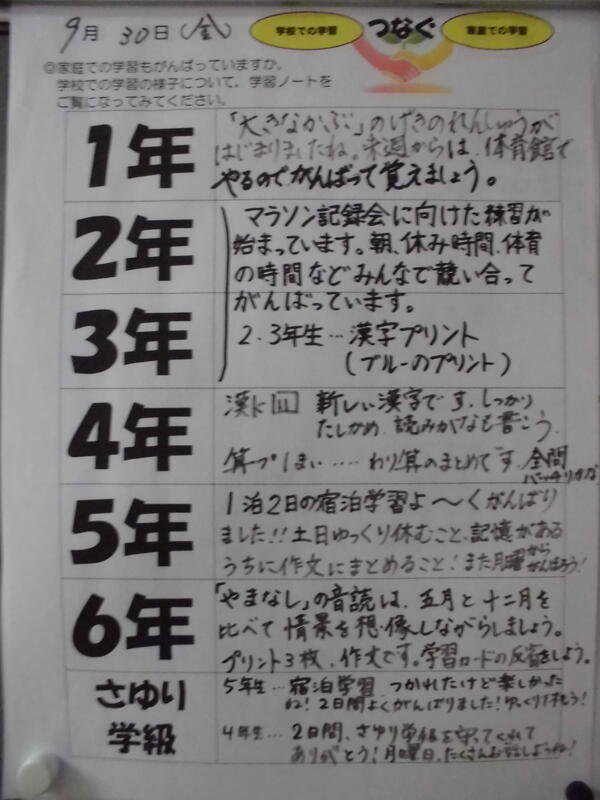 9月 30日(金)
学校での学習 つなぐ 家庭での学習
◎家庭での学習もがんばっていますか。
学校での学習の様子について、学習ノートを
ご覧になってみてください。
1年
「大きなかぶ」のげきのれんしゅうが
はじまりましたね。来週からは、体育館で
やるので、がんばって覚えましょう。
2年
3年
マラソン記録会に向けた練習が
始まっています。朝、休み時間、体育
の時間などみんなで競い合って
がんばっています。
2・3年生…漢字プリント
(ブルーのプリント)
4年
漢ド 新しい漢字です。しっかり
たしかめ、読みがなも書こう。
算プ1まい……わり算のまとめです。全問
バッチリかな
5年
1泊2日の宿泊学習よ〜くがんばり
ました!!土日ゆっくり休むこと、記憶がある
うちに作文にまとめること!また月曜から
がんばろう!
6年
「やまなし」の音読は、五月と十二月を
比べて情景を想像しながらしましょう。
プリント3枚、作文です。学習カードの反省をしよう。
さゆり
学級
5年生…宿泊学習、つかれたけど楽しかった
ね!2日間よくがんばりました!ゆっくり休もう!
4年生…2日間、さゆり学級を守ってくれて
ありがとう!月曜日、たくさんお話しようね!